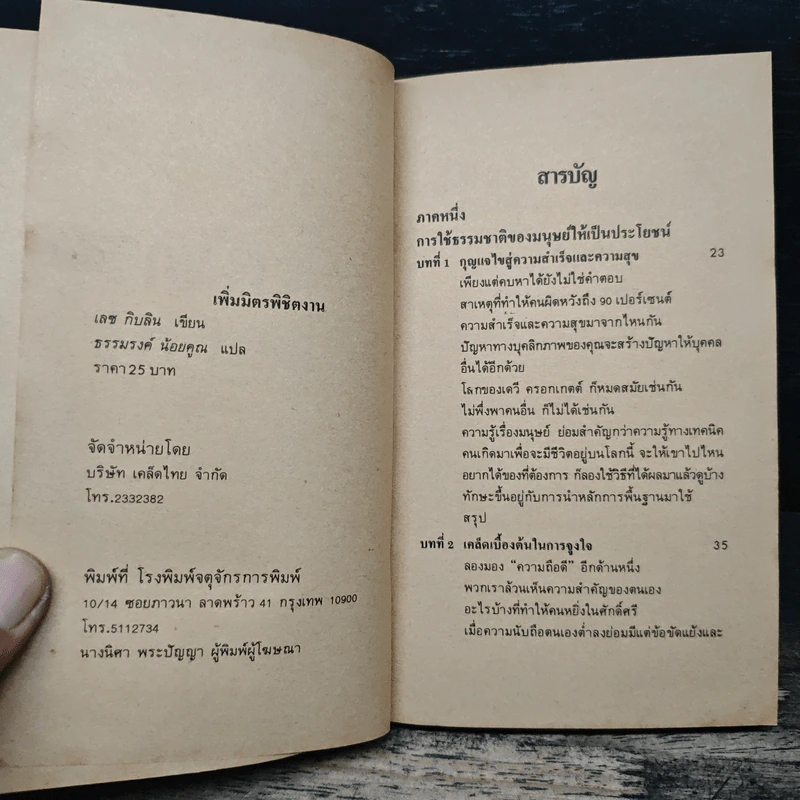 เพิ่มมิตรพิชิตงาน
เลซ กิบลิน เขียน
ธรรมรงค์ น้อยคูณ แปล
ราคา 25 บาท
จัดจำหน่ายโดย
บริษัท เคล็ดไทย จำกัด
โทร.2332382
พิมพ์ที่ โรงพิมพ์จตุจักรการพิมพ์
10/14 ซอยภาวนา ลาดพร้าว 41 กรุงเทพ 10900
โทร.5112734
นางนิศา พระปัญญา ผู้พิมพ์ผู้โฆษณา
สารบัญ
ภาคหนึ่ง
การใช้ธรรมชาติของมนุษย์ให้เป็นประโยชน์
บทที่ 1 กุญแจไขสู่ความสำเร็จและความสุข 23
เพียงแต่คบหาได้ยังไม่ใช่คำตอบ
สาเหตุที่ทำให้คนผิดหวังถึง 90 เปอร์เซนต์
ความสำเร็จและความสุขมาจากไหนกัน
ปัญหาทางบุคลิกภาพของคุณจะสร้างปัญหาให้บุคคล
อื่นได้อีกด้วย
โลกของเดวี่ ครอกเกตต์ ก็หมดสมัยเช่นกัน
ไม่พึ่งพาคนอื่น ก็ไม่ได้เช่นกัน
ความรู้เรื่องมนุษย์ ย่อมสำคัญกว่าความรู้ทางเทคนิค
คนเกิดมาเพื่อจะมีชีวิตอยู่บนโลกนี้ จะให้เขาไปไหน
อยากได้ของที่ต้องการ ก็ลองใช้วิธีที่ได้ผลมาแล้วดูบ้าง
ทักษะขึ้นอยู่กับการนำหลักการพื้นฐานมาใช้
สรุป
บทที่ 2 เคล็ดเบื้องต้นในการจูงใจ 35
ลองมอง “ความถือดี” อีกด้านหนึ่ง
พวกเราล้วนเห็นความสำคัญของตนเอง
อะไรบ้างที่ทำให้คนหยิ่งในศักดิ์ศรี
เมื่อความนับถือตนเองต่ำลงย่อมมีแต่ข้อขัดแย้งและ